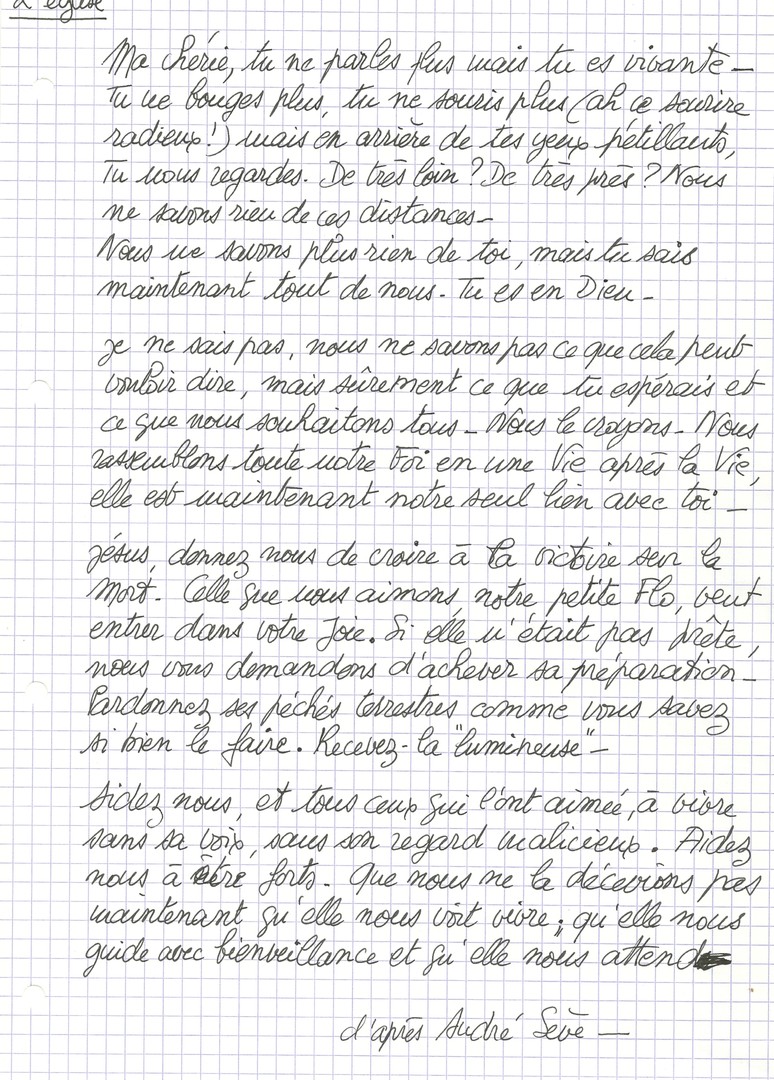 L'église
Ma chérie, tu ne parles plus mais tu es vivante _
Tu ne bouges plus, tu ne souris plus (ah ce sourire
radieux !) mais en arrière de tes yeux pétillants,
Tu nous regardes. De très loin ? De très près ? Nous
ne savons rien de ces distances _
Nous ne savons plus rien de toi, mais tu sais
maintenant tout de nous. Tu es en Dieu _
Je ne sais pas, nous ne savons pas ce que cela peut
vouloir dire, mais sûrement ce que tu espérais et
ce que nous souhaitons tous _ Nous le croyons _ Nous
rassemblons toute notre Foi en une Vie après la Vie,
elle est maintenant notre seul lien avec toi _
Jésus, donnez nous de croire à la victoire sur la
Mort. Celle que nous aimons, notre petite Flo, veut
entrer dans votre Joie. Si elle n'était pas prête,
nous vous demandons d'achever sa préparation _
Pardonnez ses péchés terrestres comme vous savez
si bien le faire. Recevez-la "lumineuse" _
Aidez nous, et tous ceux qui l'ont aimée, à vivre
sans sa voix, sans son regard malicieux. Aidez
nous à être forts. Que nous ne la décevions pas
maintenant qu'elle nous voit vivre ; qu'elle nous
guide avec bienveillance et qu'elle nous attend
d'après André Sève _